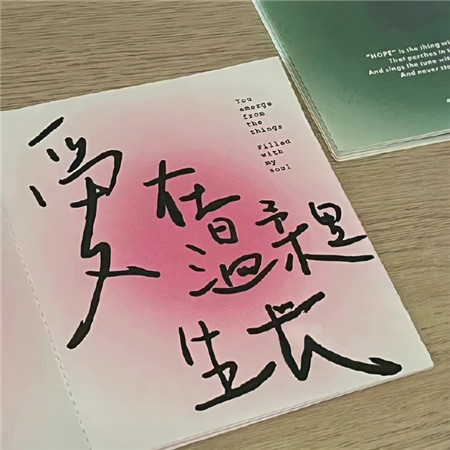 You
emerge
from
the
things
Filled
with
my
soul
爱在
温柔里
生长
"HOPE" is the thing
That perches in
And sings the tune
And never